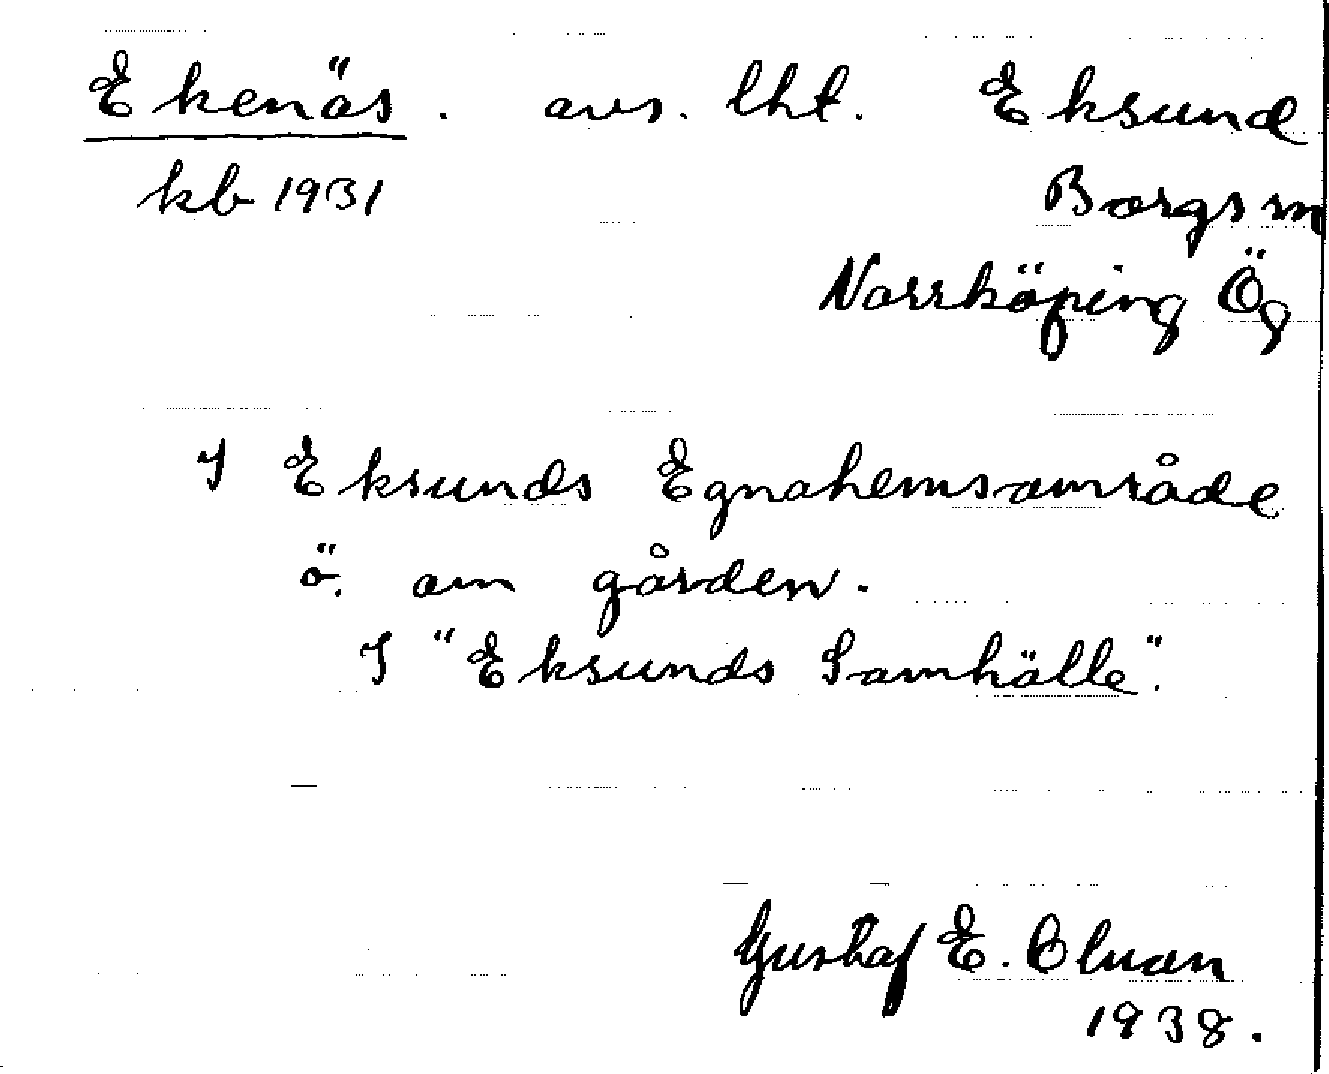 Ekenäs. avs. lht. Eksund
kb 1931 Borgs sn
Norrköping Ög
I Eksunds Egnahemsområde
ö. om gården.
I "Eksunds Samhälle".
Gustaf E.
1938.